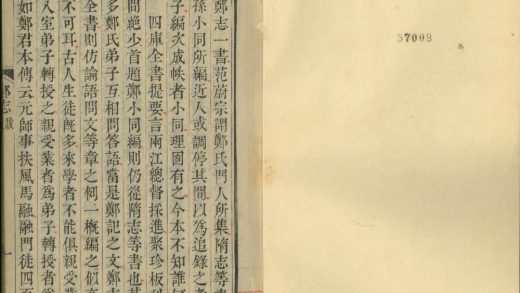 57008
鄭志一書范蔚宗謂鄭氏門人所集隋志等書
孫小同所編近人或調停其間以為追錄之者
子編次成帙者小同理固有之今本不知誰
四庫全書提要言兩江總督採進聚珍板
間絶少首題鄭小同編則仍從隋志等書也其
多鄭氏弟子互相問答語當是鄭記之文鄭志
全書則仿論語問文等章之例一概編之似
不可耳古人生徒旣多來學者不能俱親受
入室弟子轉授之親受業者為弟子轉授者
如鄭君本傳云元師事扶風馬融融門徒四
鄭志 跋 一